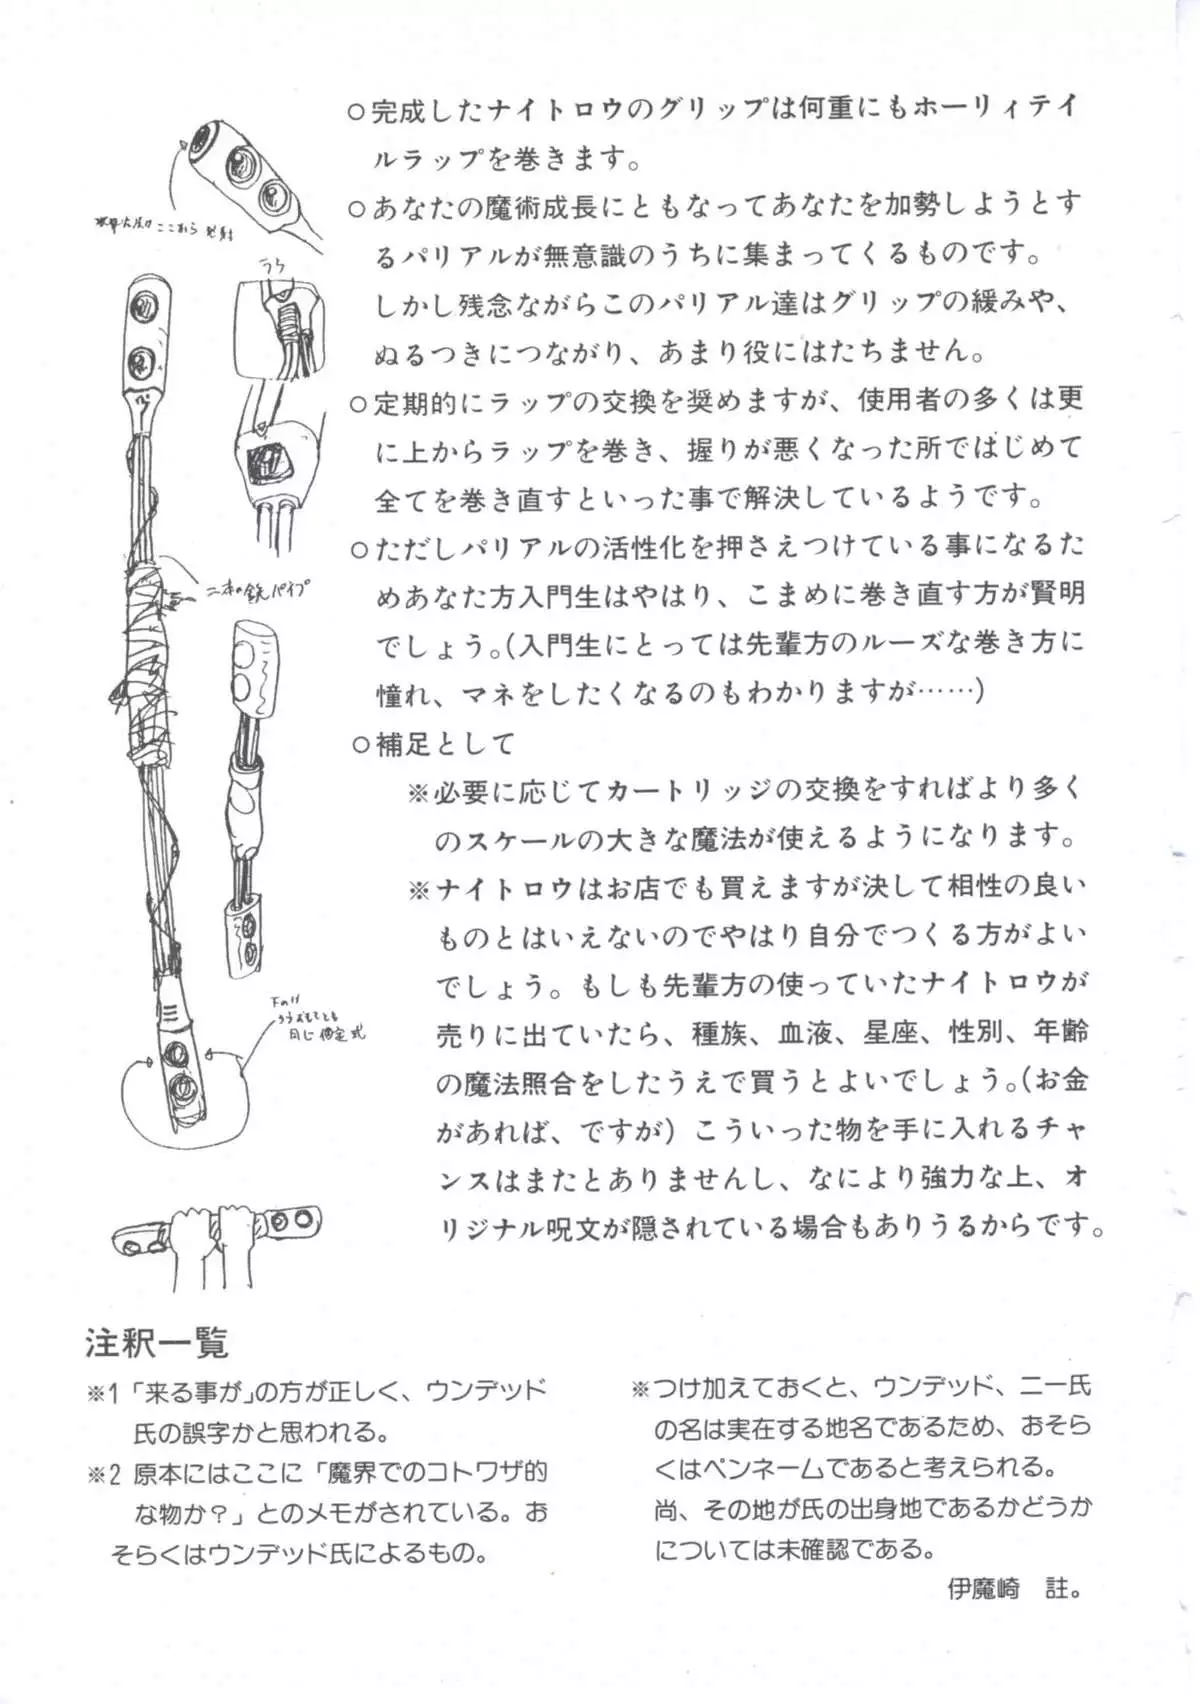 ○完成したナイトロウのグリップは何重にもホーリィテイ
ルラップを巻きます。
○あなたの魔術成長にともなってあなたを加勢しようとす
るパリアルが無意識のうちに集まってくるものです。
しかし残念ながらこのパリアル達はグリップの緩みや、
ぬるつきにつながり、あまり役にはたちません。
○定期的にラップの交換を奨めますが、使用者の多くは更
に上からラップを巻き、握りが悪くなった所ではじめて
全てを巻き直すといった事で解決しているようです。
○ただしパリアルの活性化を押さえつけている事になるた
めあなた方入門生はやはり、こまめに巻き直す方が賢明
でしょう。(入門生にとっては先輩方のルーズな巻き方に
憧れ、マネをしたくなるのもわかりますが……)
○補足として
※必要に応じてカートリッジの交換をすればより多く
のスケールの大きな魔法が使えるようになります。
※ナイトロウはお店でも買えますが決して相性の良い
ものとはいえないのでやはり自分でつくる方がよい
でしょう。もしも先輩方の使っていたナイトロウが
売りに出ていたら、種族、血液、星座、性別、年齢
の魔法照合をしたうえで買うとよいでしょう。(お金
があれば、ですが) こういった物を手に入れるチャ
ンスはまたとありませんし、なにより強力な上、オ
リジナル呪文が隠されている場合もありうるからです。
ここから 発射
うら
二本の鉄パイプ
同じ
注釈一覧
※1 「来る事が」の方が正しく、ウンデッド
氏の誤字かと思われる。
※2 原本にはここに「魔界でのコトワザ的
な物か?」とのメモがされている。お
そらくはウンデッド氏によるもの。
※つけ加えておくと、ウンデッド、ニー氏
の名は実在する地名であるため、おそら
くはペンネームであると考えられる。
尚、その地が氏の出身地であるかどうか
については未確認である。
伊魔崎 註。